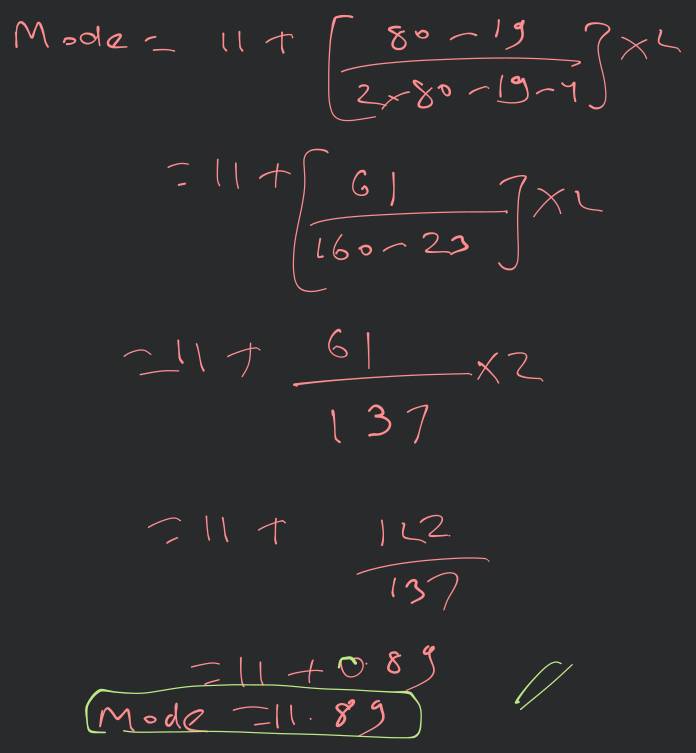 Mode = 11 + [ 80 - 19 / 2 × 80 - 19 - 4 ] × 2
= 11 + [ 61 / 160 - 23 ] × 2
= 11 + 61 / 137 × 2
= 11 + 122 / 137
= 11 + 0.89
Mode = 11.89